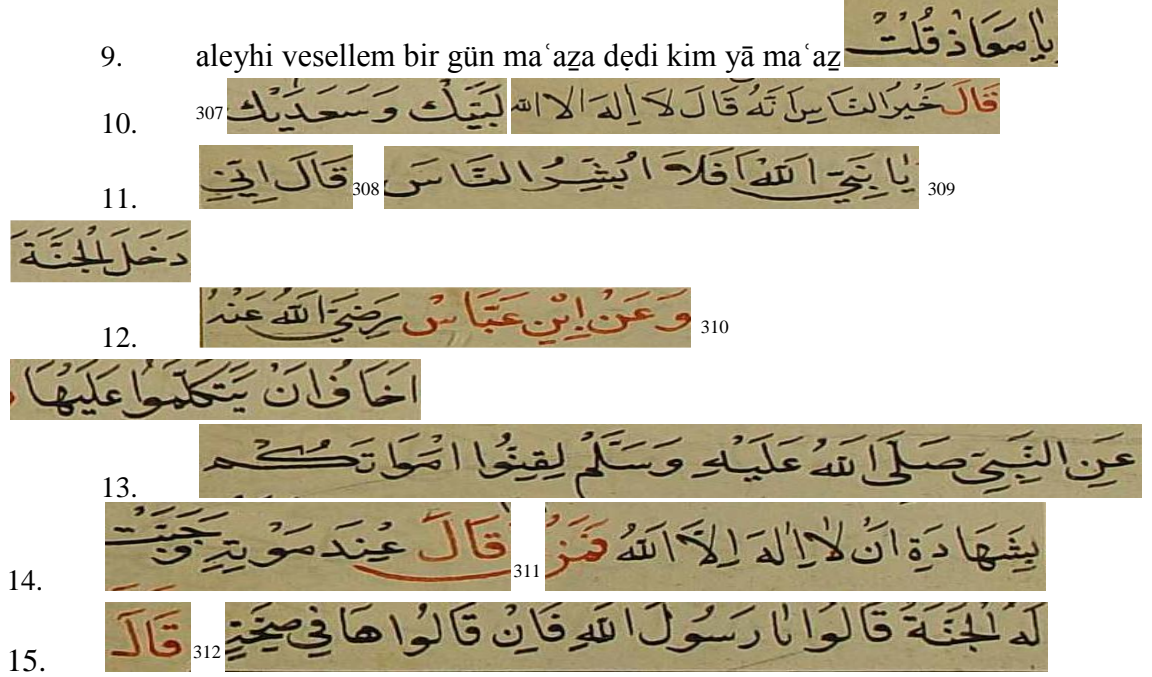 9. aleyhi vesellem bir gün maʿaẕa dẹdi kim yā maʿaẕ يَا مَعَاذْ قُلْتُ
10. 307 لَبَّيْكَ وَسَعَدَيْكَ قَالَ خَيْرُ النَّاسِ اَنَّهُ قَالَ لَا اِلٰهَ اِلَّا الله
11. قَالَ اِنِّي 308 يَا نَبِيَّ اللّٰهِ اَفَلَا اُبَشِّرُ النَّاسَ 309
دَخَلَ الْجَنَّةَ
12. وَعَنْ اِبْنِ عَبَّاسْ رَضِيَ اللّٰهُ عَنْهُ 310
اَخَافُ اَنْ يَتَكَلَّمُوا عَلَيْهَا
13. عَنِ النَّبِيِّ صَلَّى اللّٰهُ عَلَيْهِ وَسَلَّمْ لَقِّنُوا اَمْوَاتَكُمْ
14. بِشَهَادَةِ اَنْ لَا اِلٰهَ اِلَّا اللّٰهُ فَمَنْ 311 قَالَ عِنْدَ مَوْتِهِ وَجَبَتْ
15. لَهُ الْجَنَّةَ قَالُوا يَا رَسُولَ اللّٰهِ فَاِنْ قَالُوا هَا فِي صِحَّتِهِ 312 قَالَ